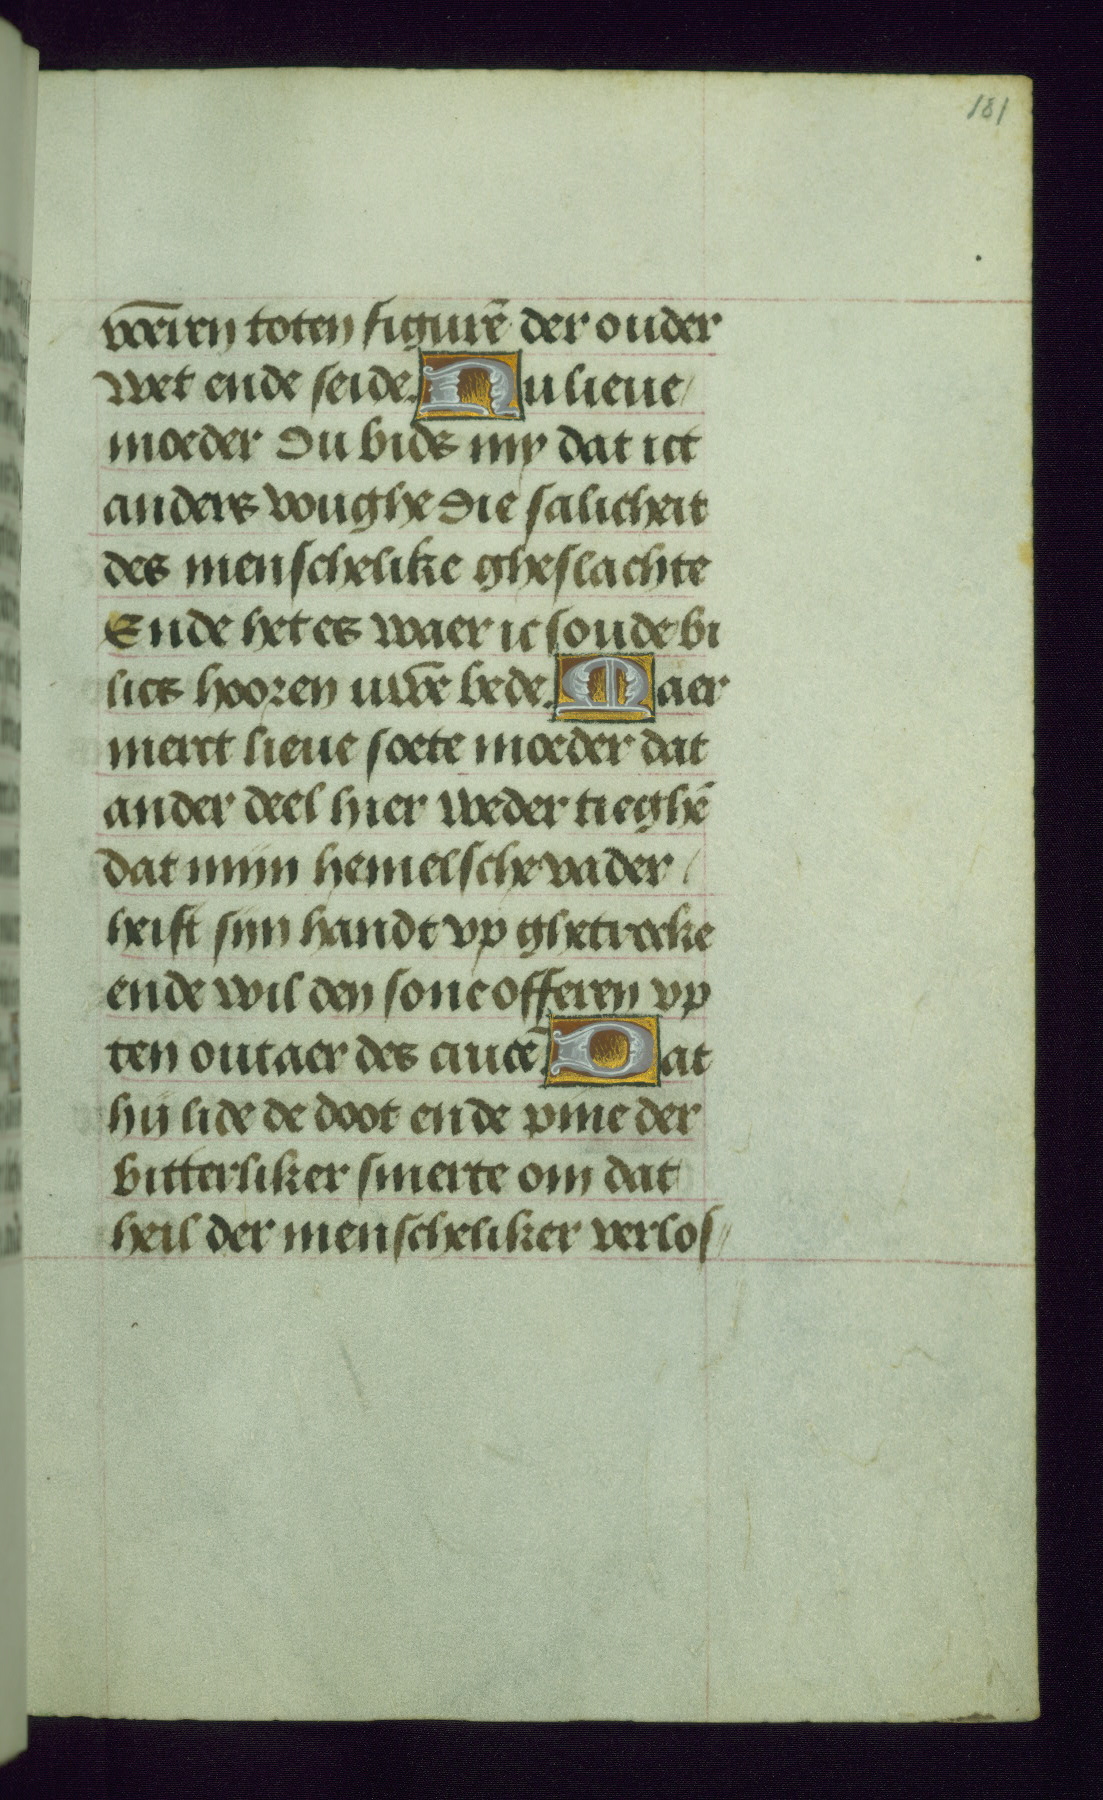 181
wērē toten figurē der ouder
wet ende seide. Nu lieue/
moeder du bids my dat ict
anders voughe die salicheit
des menschelike gheslachte
Ende het es waer ic soude bi
lics hooren uwē bede. Maer
merct lieue soete moeder dat
ander deel hier weder tieghē
dat mijn hemelsche vader /
heift sijn handt vp ghetrecke
ende wil den sone offeren vp
ten outaer des crucē. Dat
hij lide de doot ende pine der
bitterliker smerte om dat
heil der menscheliker verlos//